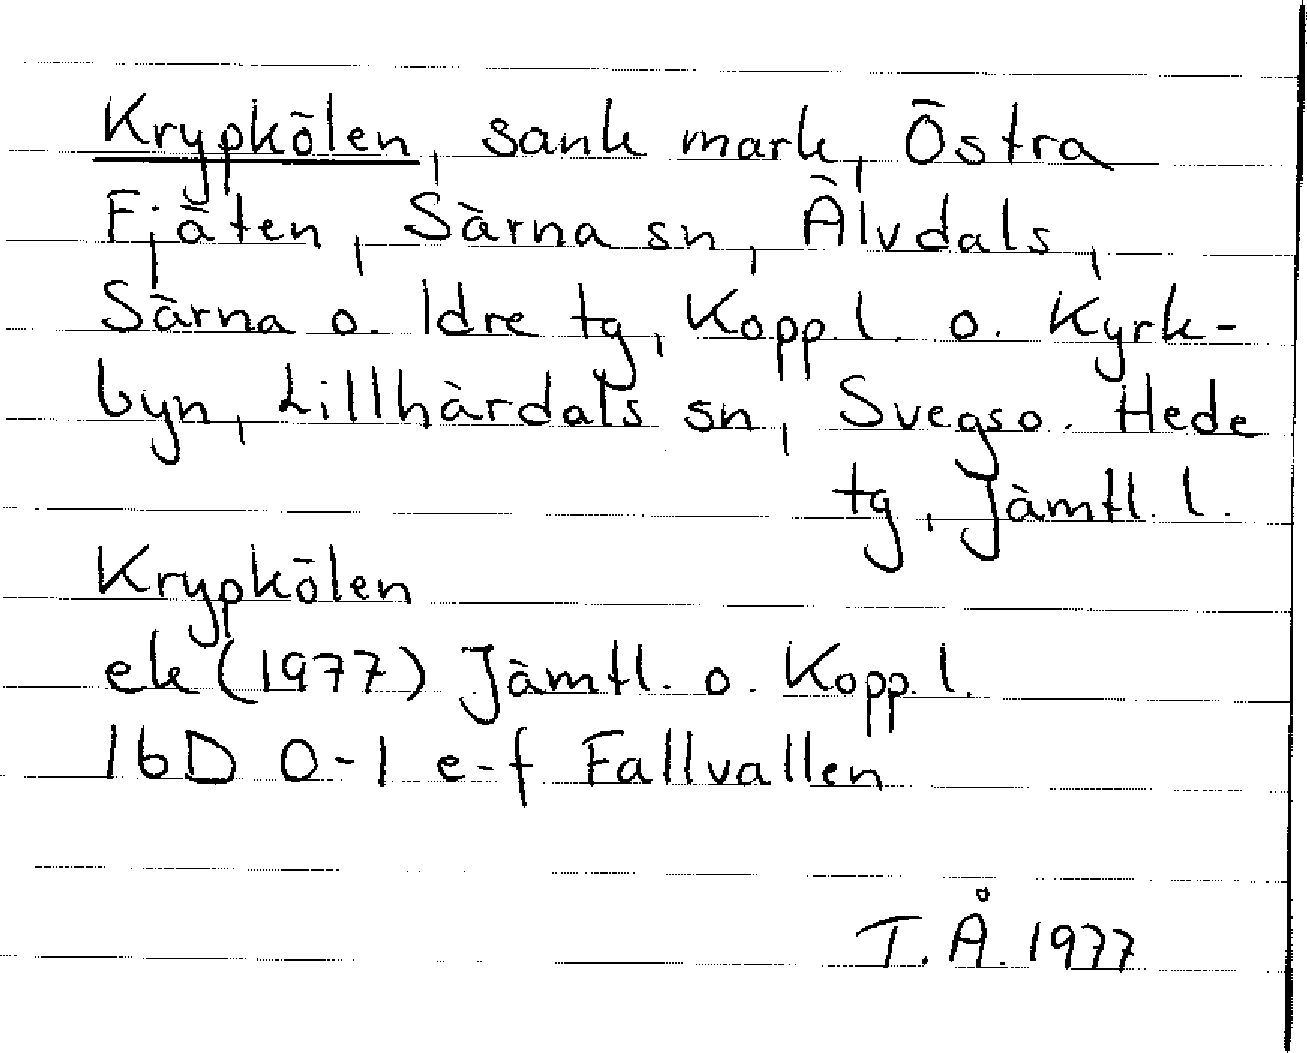 Krypkölen, sank mark, Östra
Fjäten, Särna sn, Älvdals,
Särna o. Idre tg, Kopp. l. o. Kyrk-
byn, Lillhärdals sn, Svegs o. Hede
tg, Jämtl. l.
Krypkölen
ek (1977) Jämtl. o. Kopp. l.
16D 0-1 e-f Fallvallen
T. Å. 1977